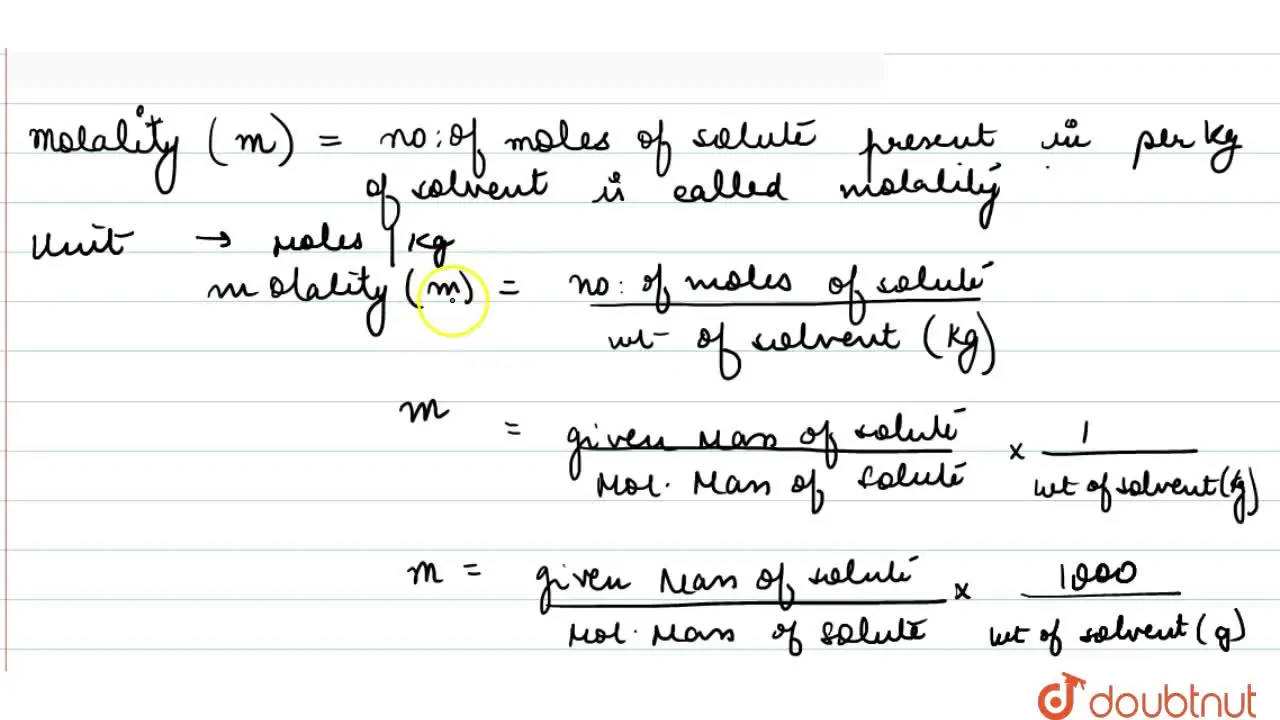 Molality (m) = no: of moles of solute present in per Kg
of solvent is called molality
Unit → Moles / Kg
molality (m) = no: of moles of solute
wt of solvent (Kg)
m = given Mass of solute × 1
Mol. Mass of solute wt of solvent (Kg)
m = given Mass of solute × 1000
Mol. Mass of solute wt of solvent (g)
doubtnut